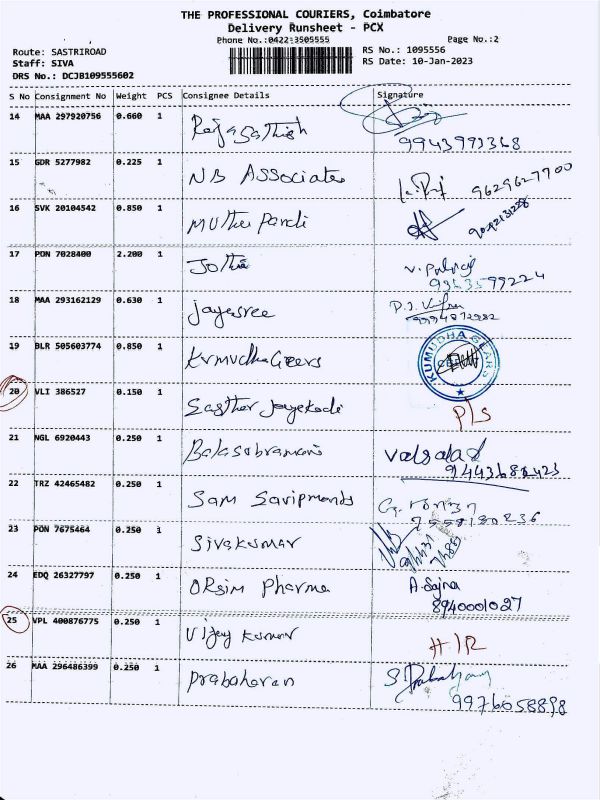 THE PROFESSIONAL COURIERS, Coimbatore
Delivery Runsheet - PCX
Phone No.:0422-3505555 Page No.:2
Route: SASTRIROAD RS No.: 1095556
Staff: SIVA RS Date: 10-Jan-2023
DRS No.: DCJB109555602
S No Consignment No Weight PCS Consignee Details Signature
14 MAA 297920756 0.660 1 Rajasathish
9943993368
15 GDR 5277982 0.225 1 NB Associates 9629627700
16 SVK 20104542 0.850 1 Muthu Pandi
17 PDN 7028400 2.200 1 Jothi
18 MAA 293162129 0.630 1 Jayasree
9994872982
19 BLR 505603774 0.850 1 Kumudha Gears KUMUDHA GEARS
20 VLI 386527 0.150 1 Sasther Jayekodi P/S
21 NGL 6920443 0.250 1 Balasubramani
22 TRZ 42465482 0.250 1 Sam
23 PON 7675464 0.250 1 Sivakumar
24 EDQ 26327797 0.250 1 ORSim Pharma A. Sajna
8940001027
25 VPL 400876775 0.250 1 Vijay Kumar
26 MAA 296486399 0.250 1 Prabaharan
9976058898